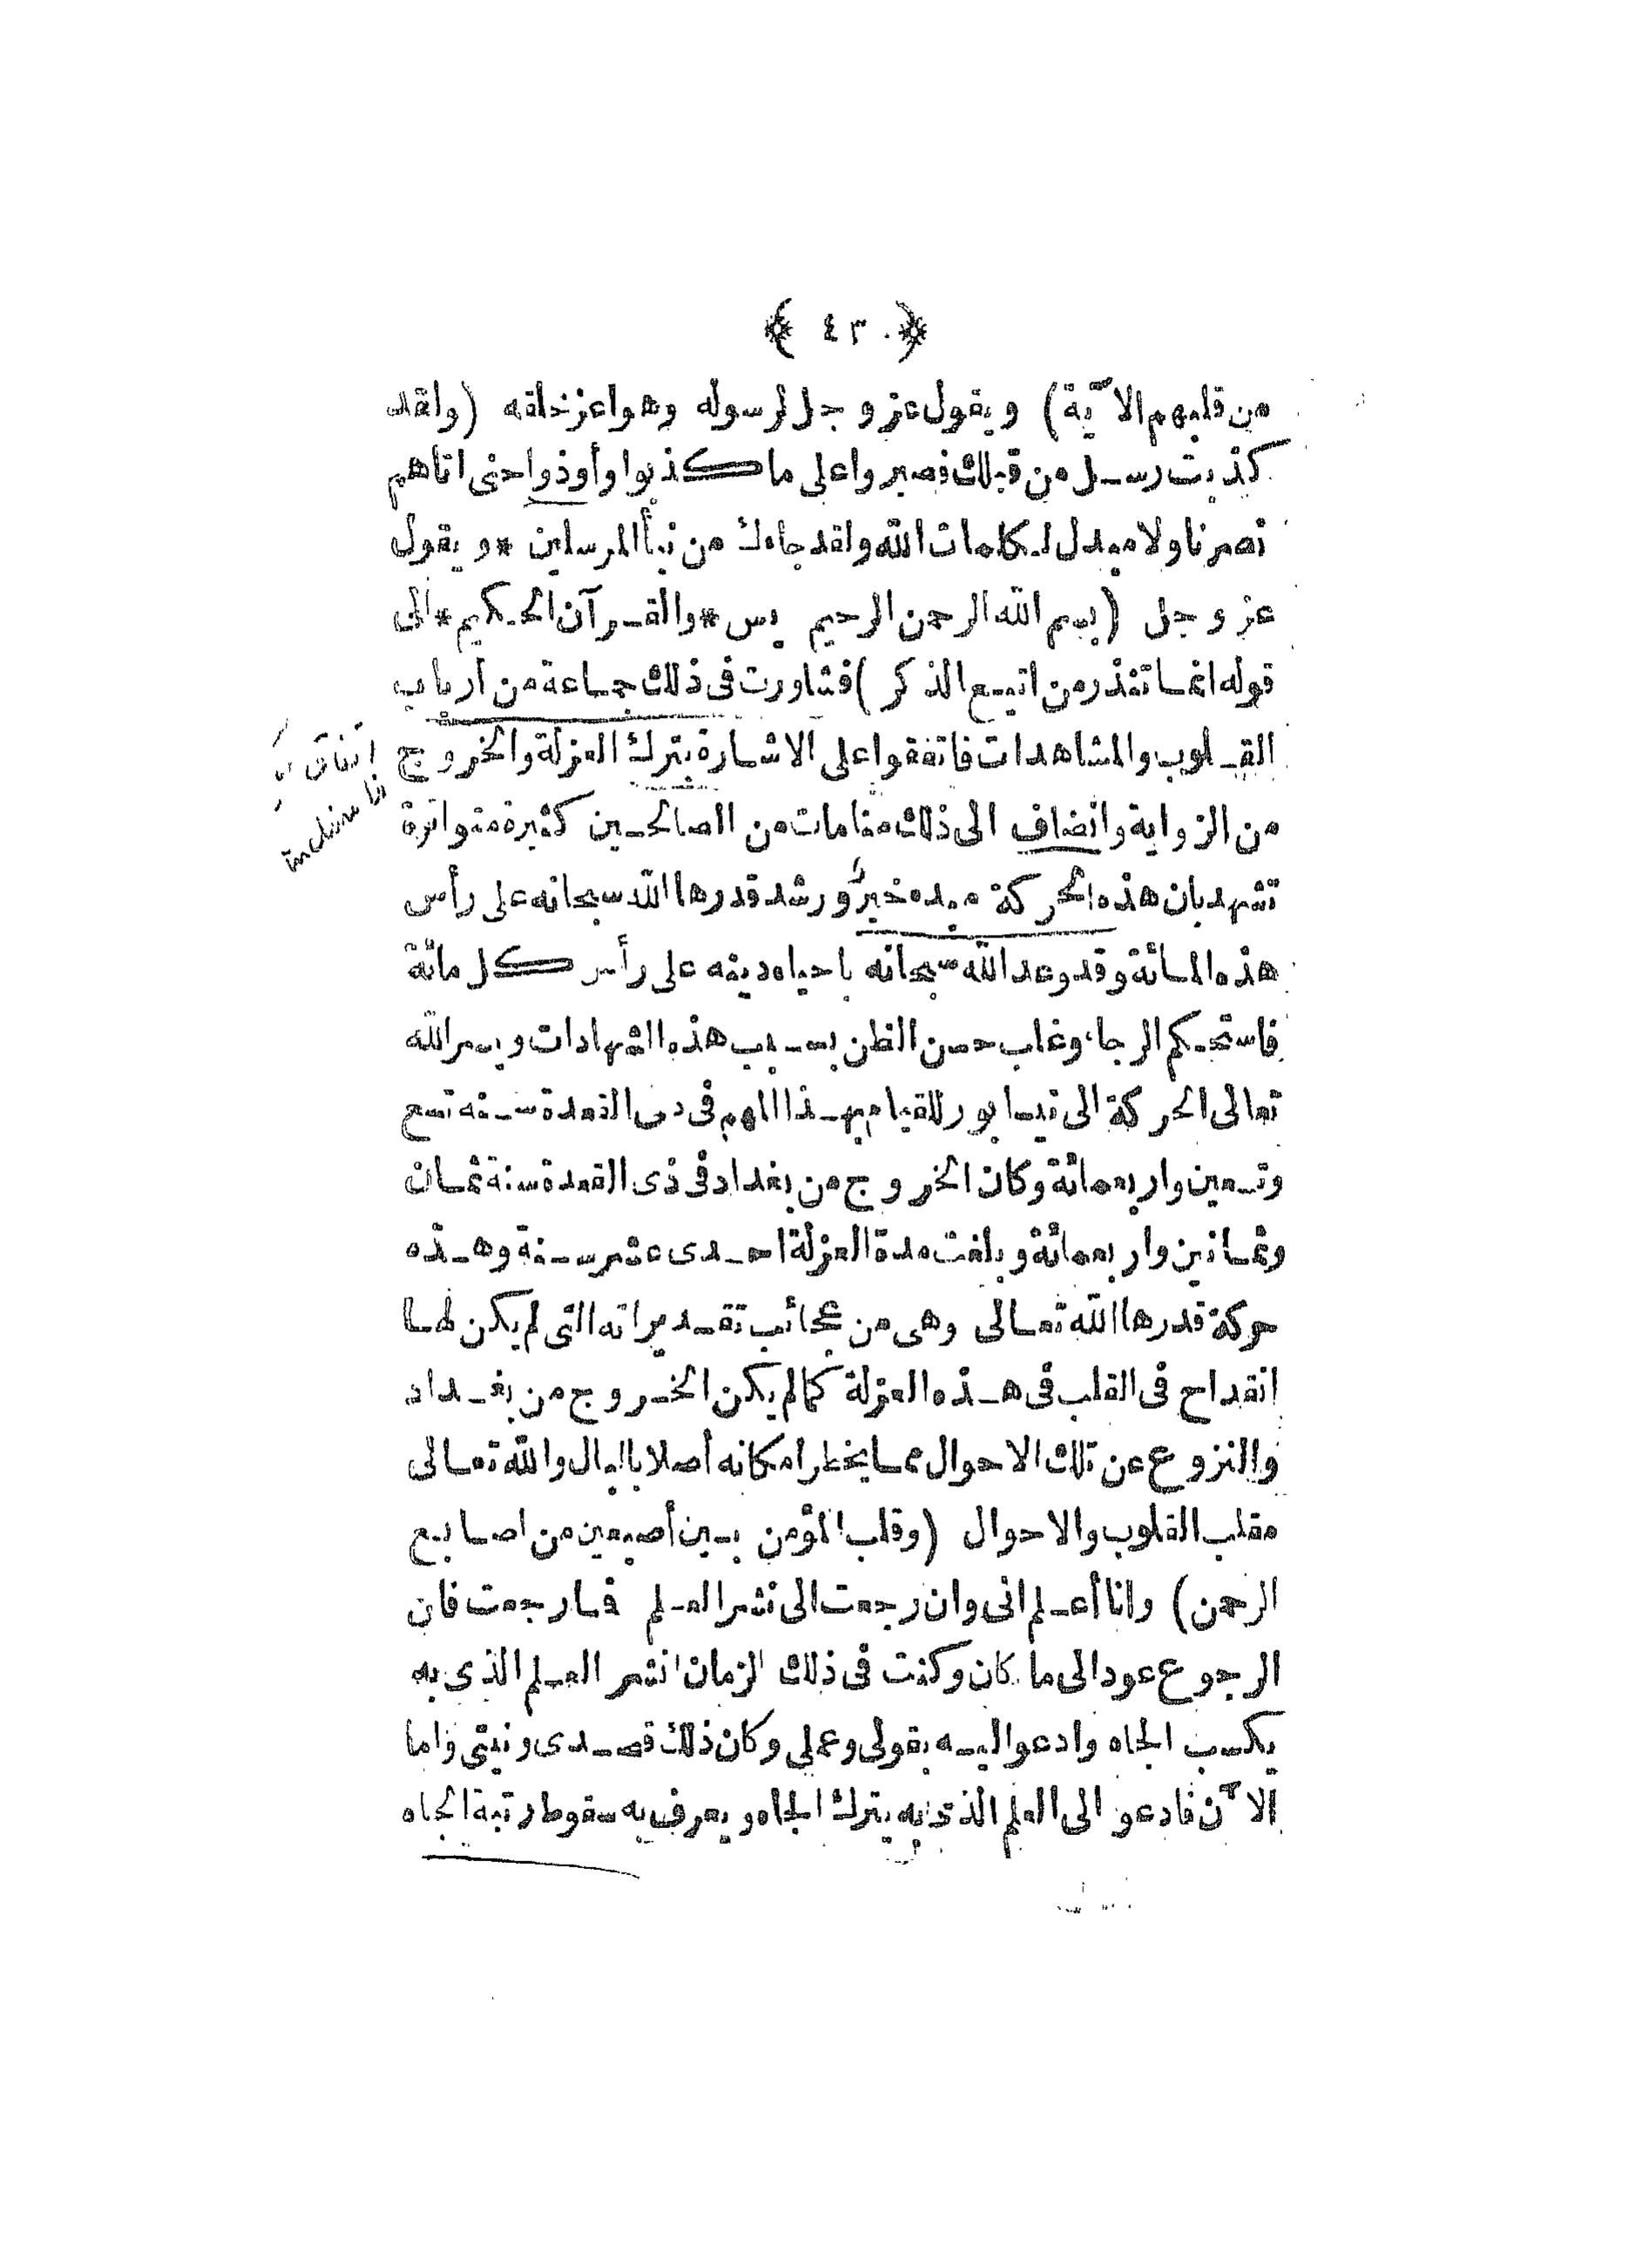 ﴿ ٤٣ ﴾
من قبلهم الآية) ويقول عز وجل لرسوله وهو اعز خلقه (ولقد
كذبت رسل من قبلك فصبروا على ما كذبوا وأوذوا حتى اتاهم
نصرنا ولا مبدل لكلمات الله ولقد جاءك من نبأ المرسلين * ويقول
عز وجل (بسم الله الرحمن الرحيم يس * والقرآن الحكيم * الى
قوله انما تنذر من اتبع الذكر) فشاورت فى ذلك جماعة من أرباب
القلوب والمشاهدات فاتفقوا على الاشارة بترك العزلة والخروج
من الزواية وانضاف الى ذلك منامات من الصالحين كثيرة متواترة
تشهد بان هذه الحركة مبدء خير ورشد قدرها الله سبحانه على رأس
هذه المائة وقد وعد الله سبحانه باحياء دينه على رأس كل مائة
فاستحكم الرجاء وغلب حسن الظن بسبب هذه الشهادات ويسر الله
تعالى الحركة الى نيسابور للقيام بهذا المهم فى ذى القعدة سنة تسع
وتسعين واربعمائة وكان الخروج من بغداد فى ذى القعدة سنة ثمان
وثمانين واربعمائة وبلغت مدة العزلة احدى عشر سنة وهذه
حركة قدرها الله تعالى وهى من عجائب تقديراته التى لم يكن لها
انقداح فى القلب فى هذه العزلة كما لم يكن الخروج من بغداد
والنزوع عن تلك الاحوال مما يخطر امكانه أصلا بالبال والله تعالى
مقلب القلوب والاحوال (وقلب المؤمن بين أصبعين من اصابع
الرحمن) وانا أعلم انى وان رجعت الى نشر العلم فما رجعت فان
الرجوع عود الى ما كان وكنت فى ذلك الزمان انشر العلم الذى به
يكسب الجاه وادعو اليه بقولى وعملى وكان ذلك قصدى ونيتى واما
الآن فادعو الى العلم الذى به يترك الجاه ويعرف به سقوط رتبة الجاه